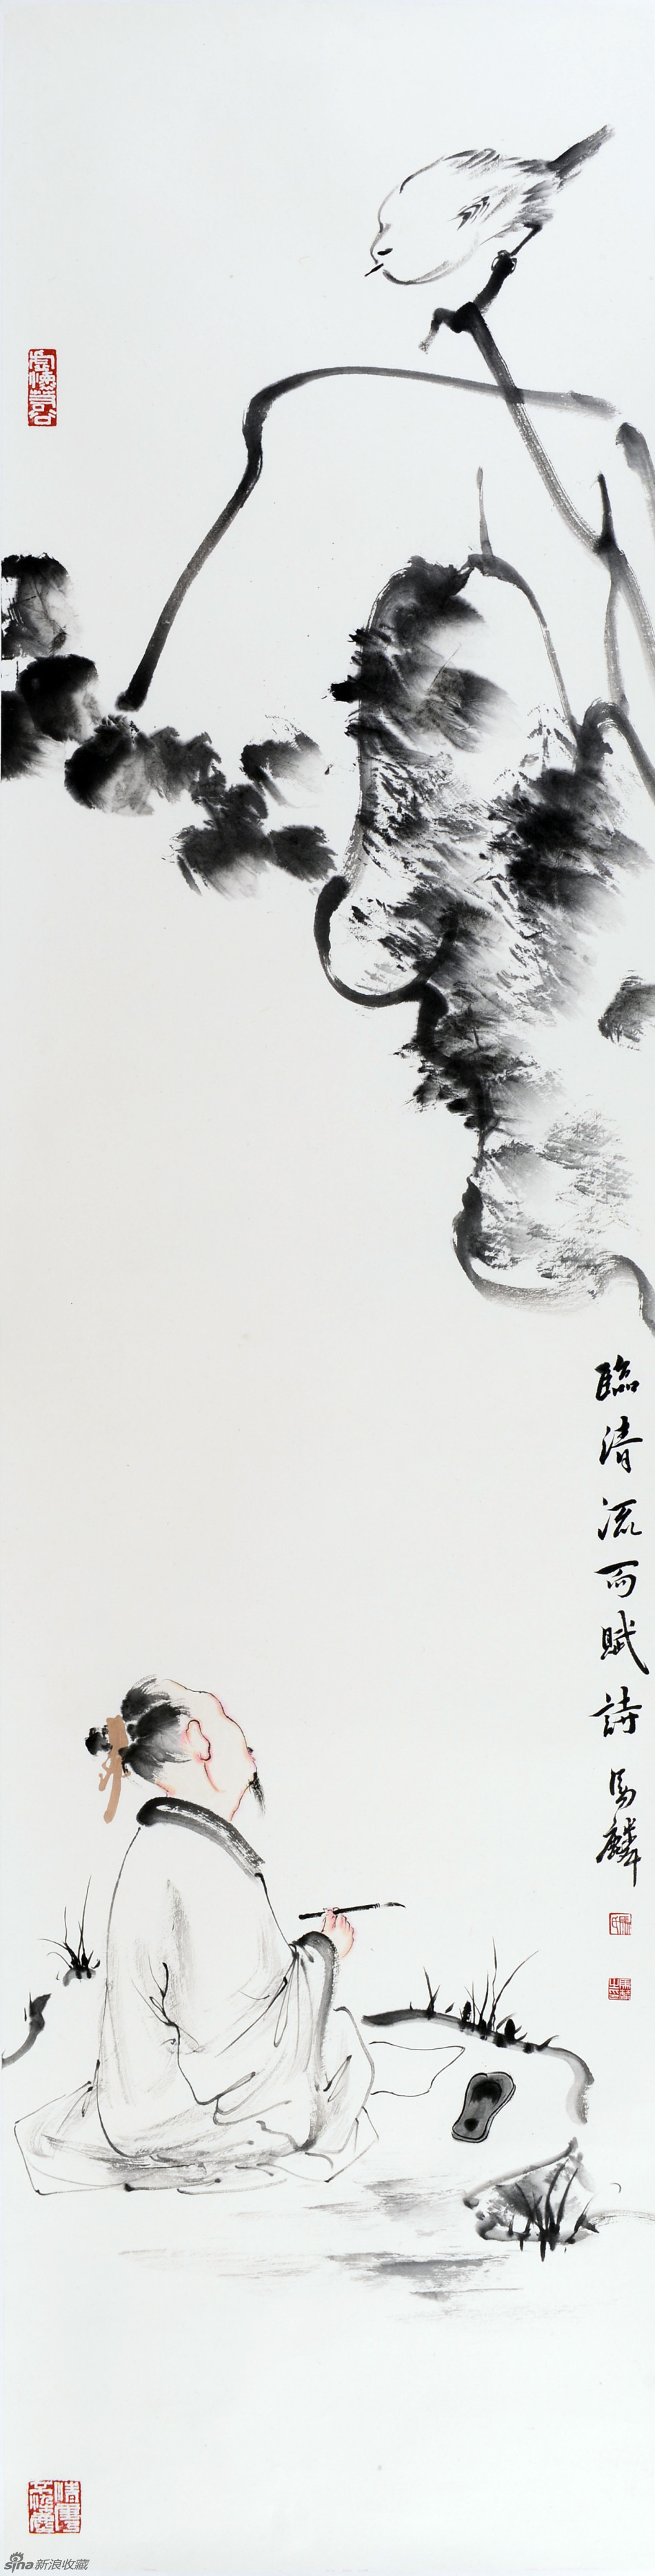 臨清流而賦詩 馬麟
sina新浪收藏